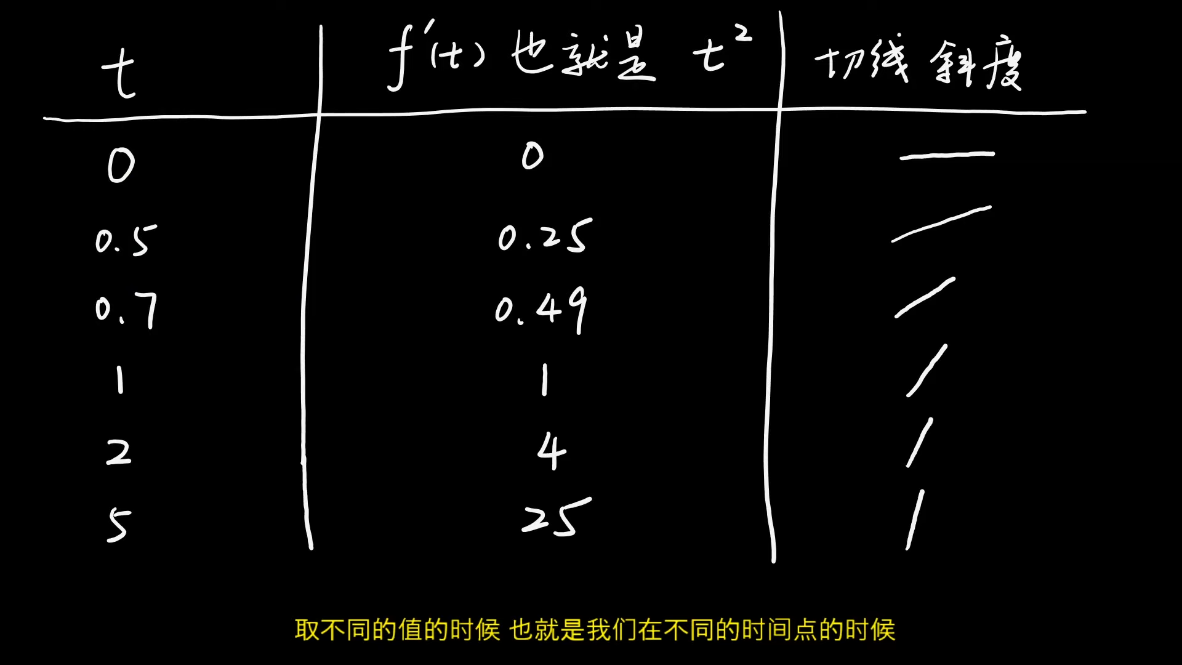 t f′(t) 也就是 t² 切线斜度
0 0
0.5 0.25
0.7 0.49
1 1
2 4
5 25
取不同的值的时候 也就是我们在不同的时间点的时候